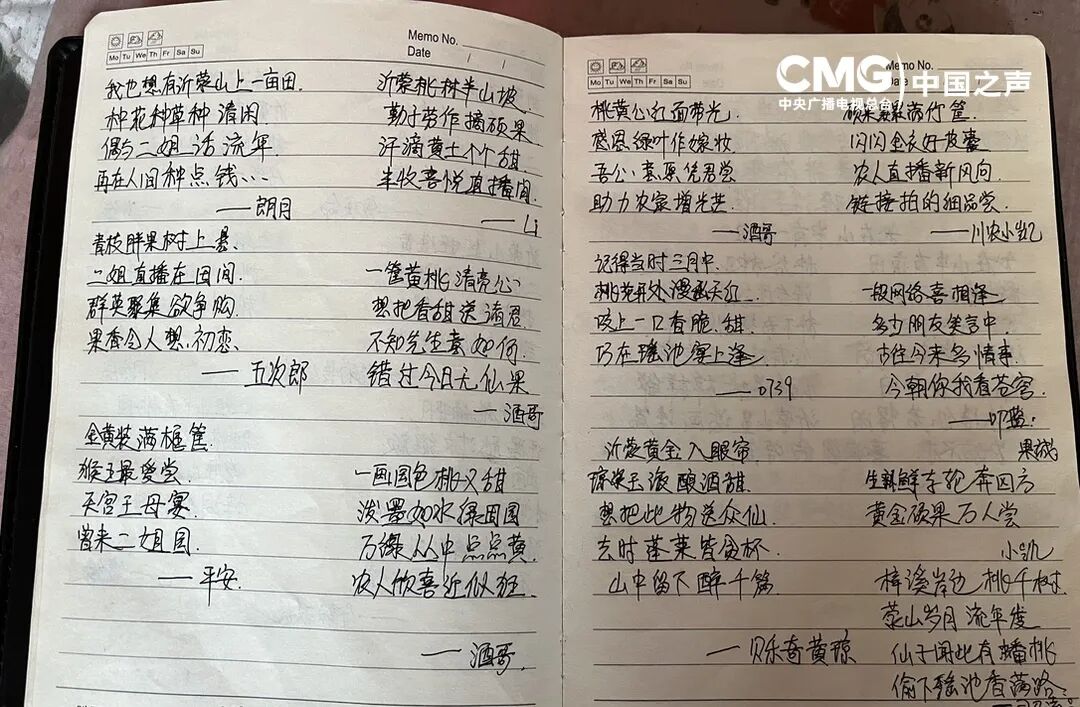 Memo No.
Mo Tu We Th Fr Sa Su
Date / /
我也想有沂蒙山上一亩田.
种花种草种清闲
偶与二姐话流年.
再在人间种点钱…
——朗月
沂蒙桃林半山坡
勤于劳作摘硕果
汗滴黄土个个甜
丰收喜悦直播间.
——Li
青枝胖果树上悬、
二姐直播在田间.
群英聚集欲争购
果香令人想初恋、
——五次郎
一筐黄桃清亮心
想把香甜送诸君
不知先生意如何
错过今日无仙果
——酒哥
金黄装满框筐.
猴王最爱尝
天宫王母宴.
曾来二姐园.
——平安.
一画园色桃又甜
泼墨如水绿田园
万绿丛中点点黄.
农人欣喜近似狂.
——酒哥.
Memo No.
Mo Tu We Th Fr Sa Su
Date
CMG 中国之声
中央广播电视总台
桃黄公红面带光.
感恩绿叶作嫁妆
吾公素願凭君尝
助力农家增光芒
——酒哥
硕果累累满竹筐
闪闪金衣好皮囊
农人直播新风向
链接拍的细品尝
——川农小凯
记得当时三月中.
桃花开处漫
咬上一口香脆、甜
巧在瑶池宴上逢
——0739
一段网络喜相逢
多少朋友笑言中
古往今来多情事
今朝你我看苍穹
——叮蓝.
沂蒙黄金入眼帘
琼浆玉液酿酒甜.
想把此物送众仙
去时蓬莱皆贪杯
山中留下醉千篇
——贝乐奇黄琼
果城
生新鲜车轮奔四方
黄金硕果万人尝
小凯
梓溪岸边桃千树
蒙山岁月流年度
仙子闻此有蟠桃
偷下瑶池香满路